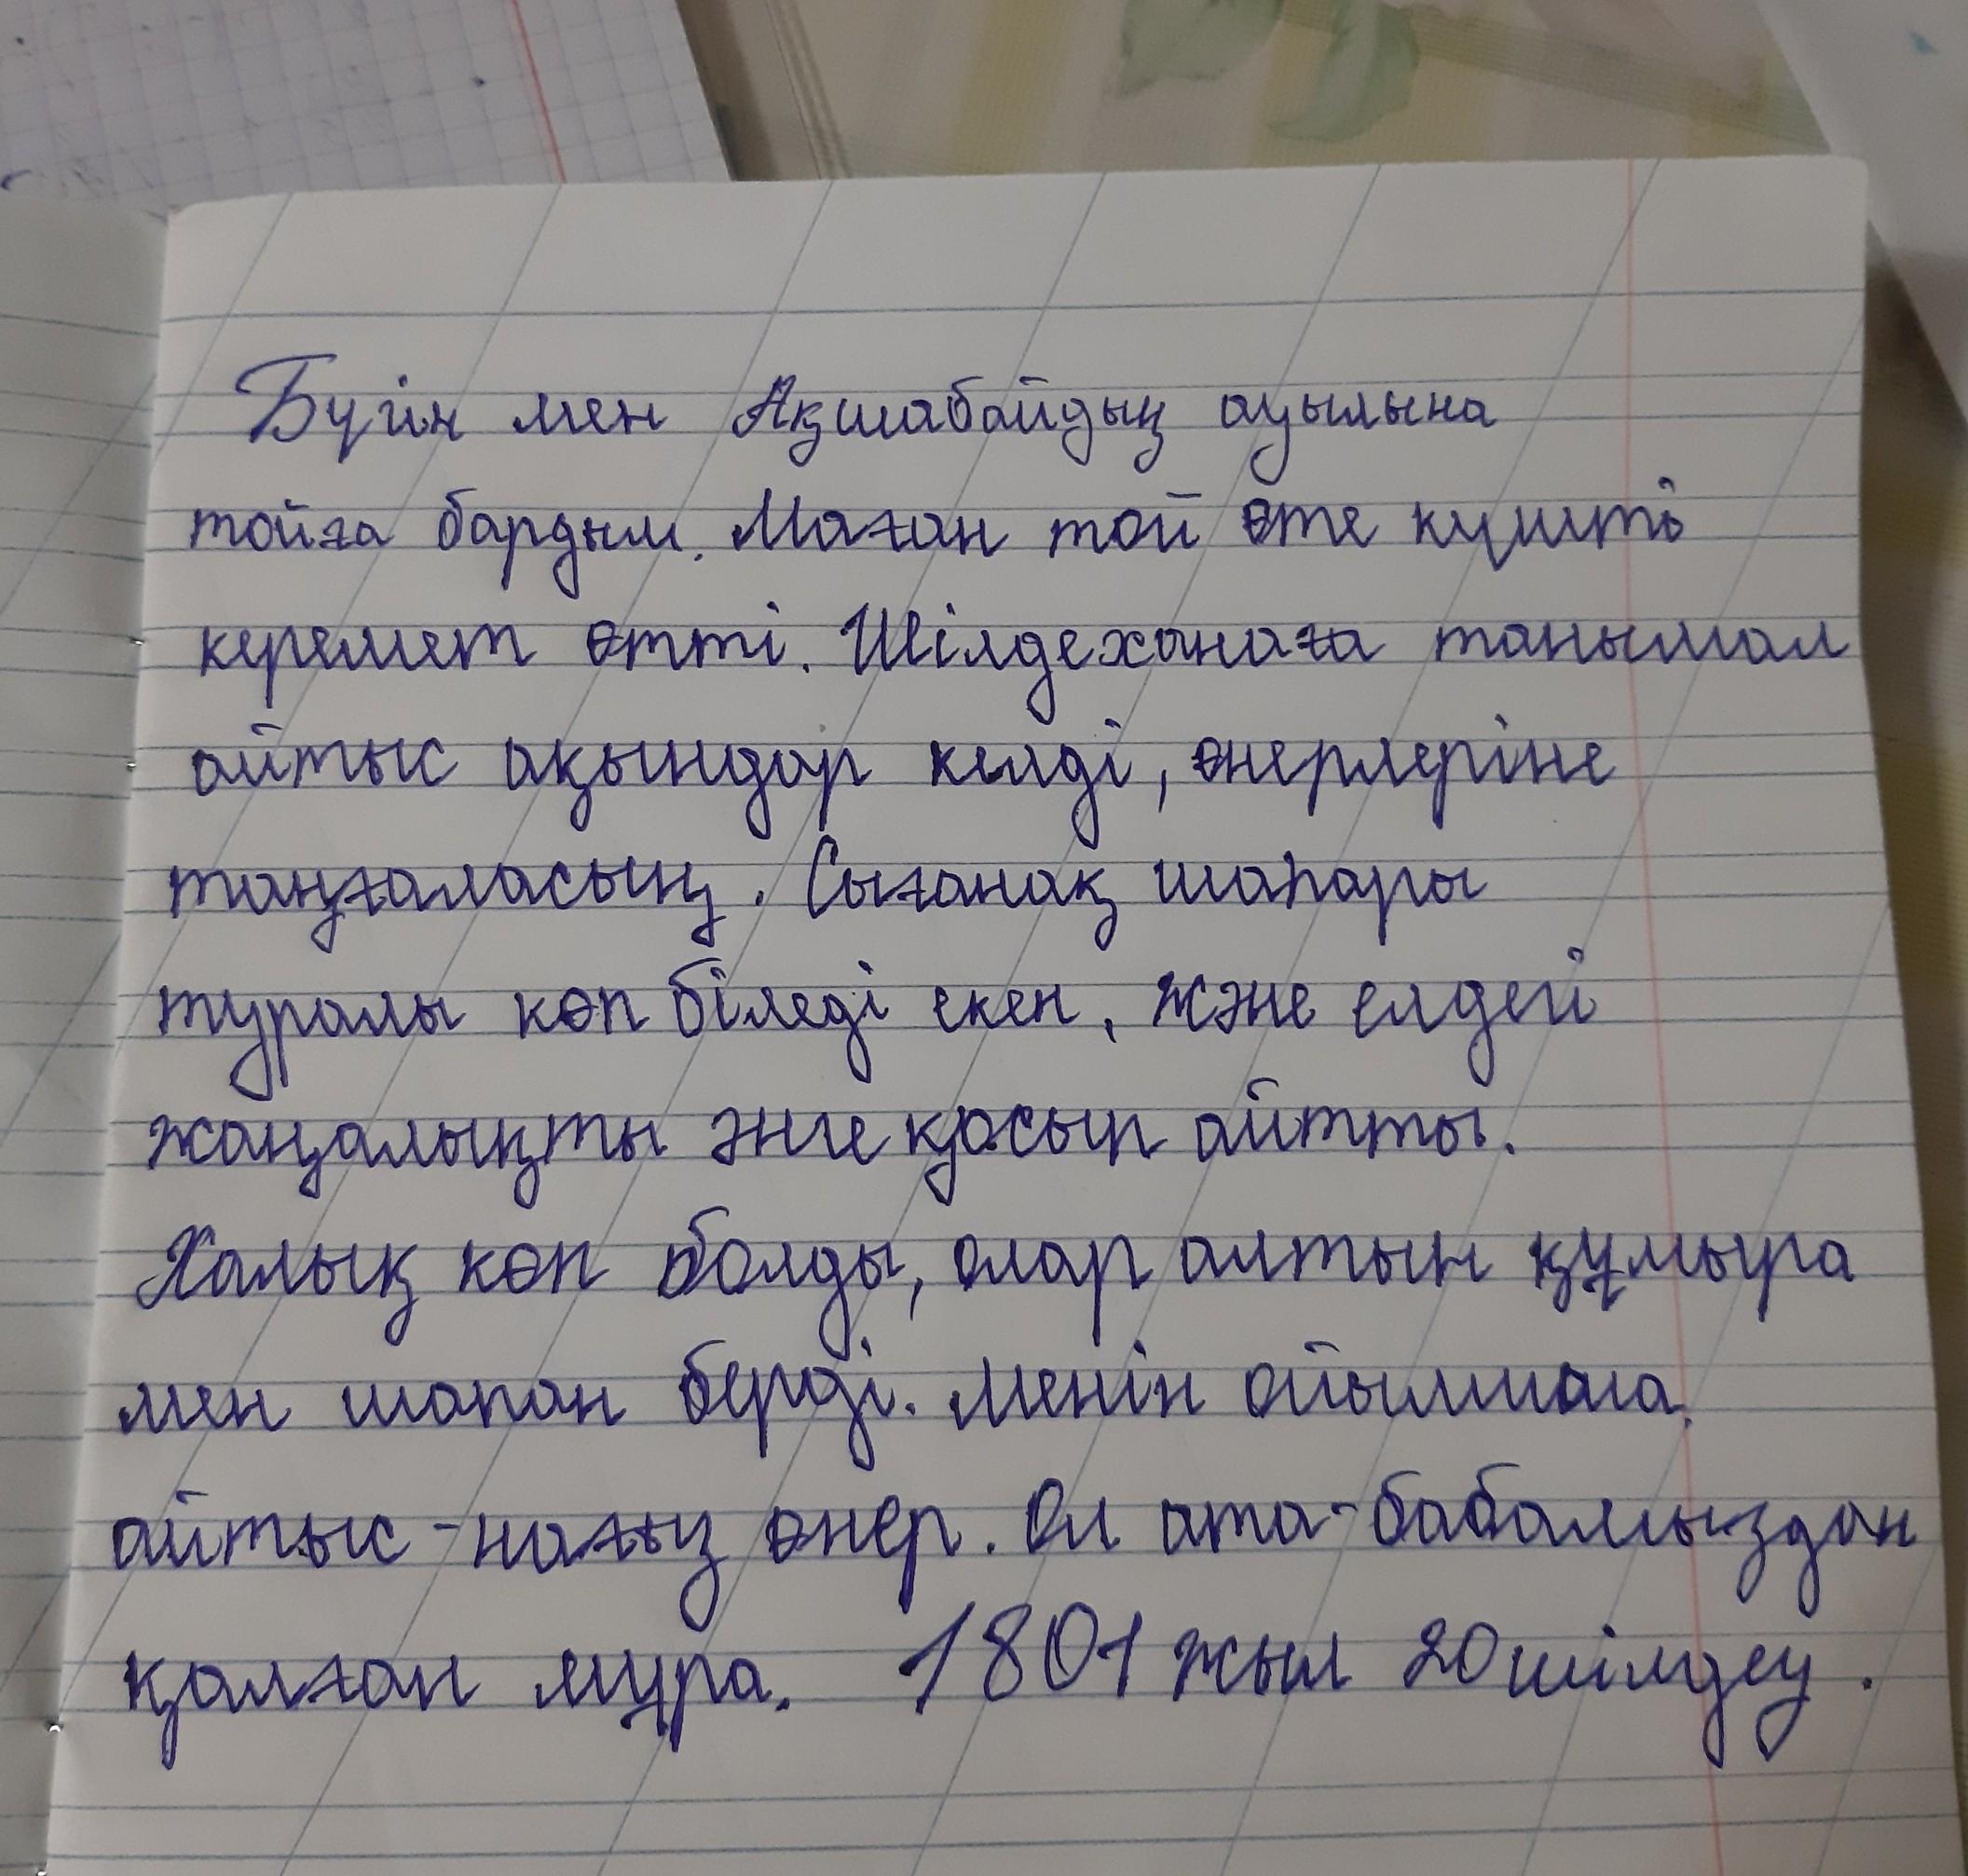 Бүгін мен Ақшабайдың ауылына
тойға бардым. Маған той өте күшті
керемет өтті. Шілдеханаға танымал
айтыс ақындар келді, өнерлеріне
таңғаласың. Сығанақ шаһары
туралы көп біледі екен, және елдегі
жаңалықты әнге қосып айтты.
Халық көп болды, олар алтын құмыра
мен шапан берді. Менін ойымша,
айтыс - нағыз өнер. Ол ата-бабамыздан
қалған мұра. 1801 жыл 20 шілдеу.